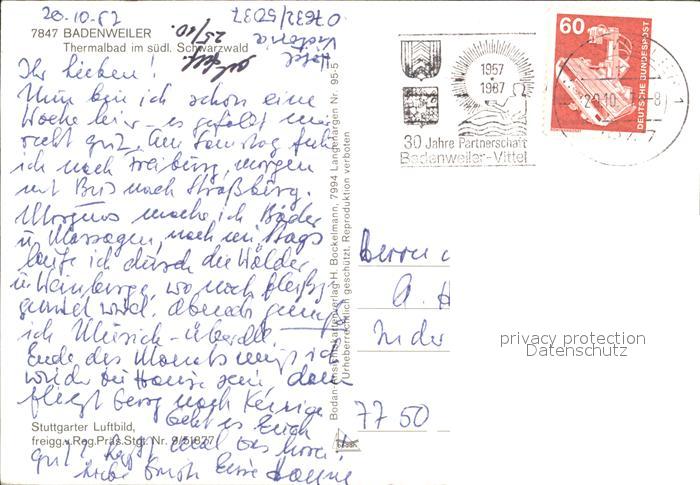 20.10.87
7847 BADENWEILER
Thermalbad im südl. Schwarzwald
Hotel
Viktoria
07632/5037
25/10.
Ihr Lieben!
Nun bin ich schon eine
Woche hier – es gefällt mir
recht gut. Am Samstag fuhr
ich nach Freiburg, morgen
mit Bus nach Straßburg.
Morgens mache ich Bäder
u. Massagen, nachmittags
laufe ich durch die Wälder
u. Weinberge, wo noch fleißig
wird. Abends
ich Musik überall.
Ende des Monats muß ich
wieder zu Hause sein, dann
fliegt Georg nach Kenia.
Geht es Euch
gut?
Liebe Grüße Eure
Stuttgarter Luftbild,
freigg. v. Reg. Präs. Stgt. Nr. 9/51827
Bodan-Ansichtskartenverlag H. Bockelmann, 7994 Langenargen Nr. 95-5
Urheberrechtlich geschützt. Reproduktion verboten
1957
1987
30 Jahre Partnerschaft
Badenweiler-Vittel
60
DEUTSCHE BUNDESPOST
Herrn
A. H
In der
7750
privacy protection
Datenschutz